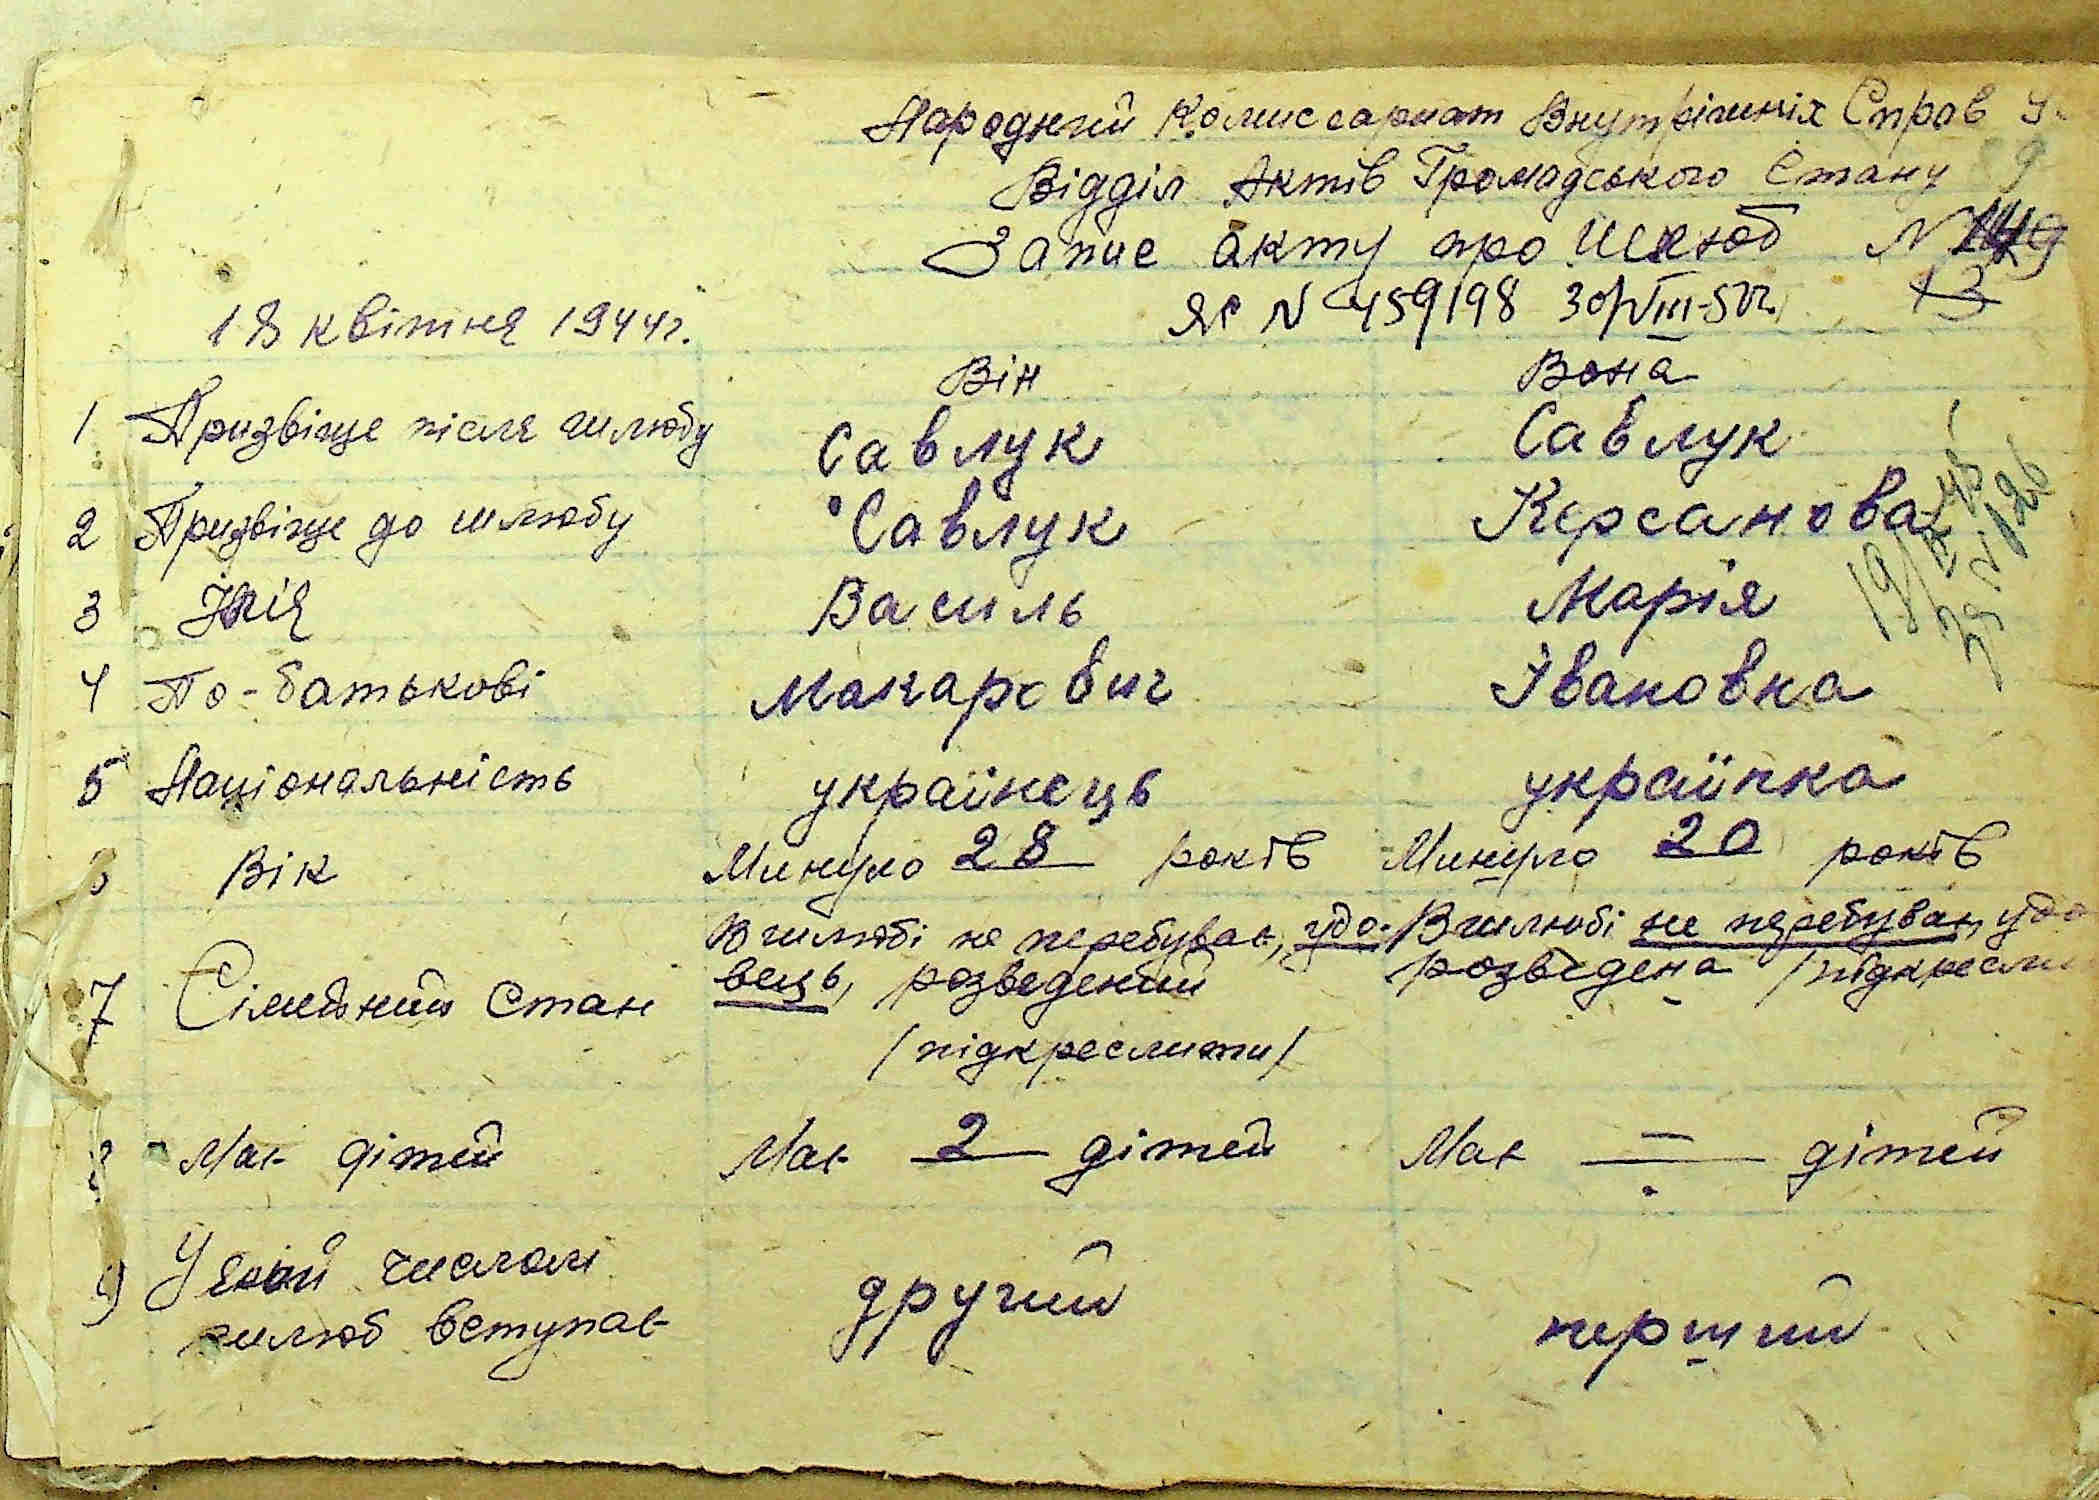 Народний Комиссариат Внутрішніх Справ У
Відділ Актів Громадського Стану 9
Запис акту про Шлюб N
ЯС N 459198 30/VIII-50г. 13
18 квітня 1944г.
Він Вона
1 Призвіще після шлюбу Савлук Савлук
2 Призвіще до шлюбу Савлук Керсанова
3 Імія Василь Марія
4 По-батькові Макарович Івановна
5 Національність українець українка
6 Вік Минуло 28 років Минуло 20 років
7 Сімейний стан В шлюбі не перебував, удо- В шлюбі не перебувал, удо
вець, розведений розведена /підкресли
/підкреслити/
8 Має дітей Має 2 дітей Має — дітей
9 У який числом другий перший
шлюб вступає